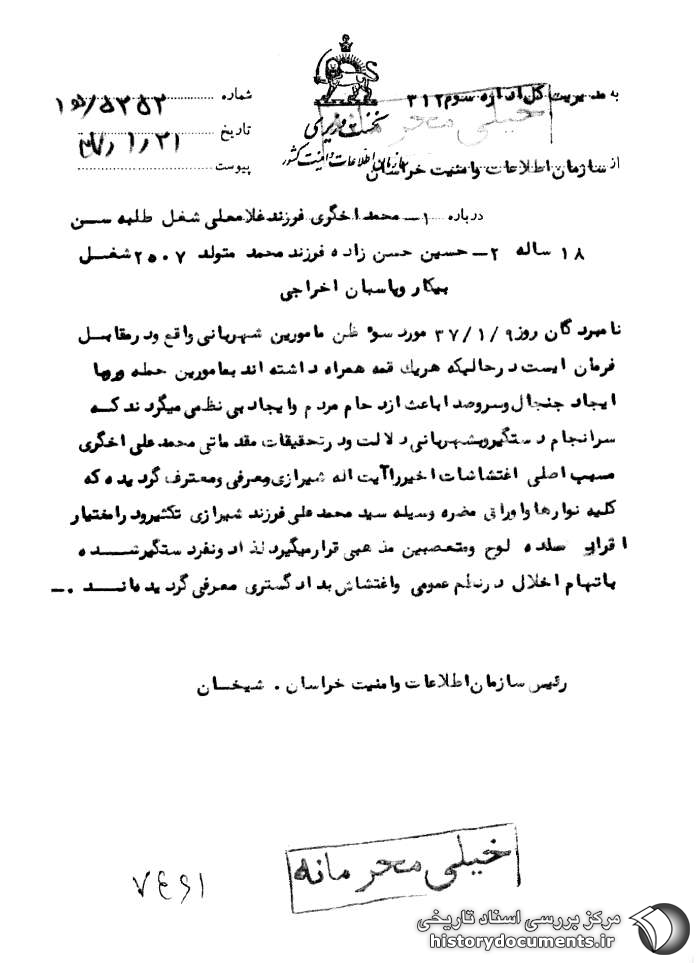 به مدیریت کل اداره سوم ۳۱۲
خیلی محرمانه
نخست وزیری
سازمان اطلاعات و امنیت کشور
از سازمان اطلاعات و امنیت خراسان
شماره
تاریخ ۳۷/۱/۲۱
پیوست
درباره ۱- محمد اخگری فرزند غلامعلی شغل طلبه سن
۱۸ ساله ۲- حسین حسن زاده فرزند محمد متولد ۲۵۰۷ شغل
بیکار و پاسبان اخراجی
نامبردگان روز ۳۷/۱/۹ مورد سوء ظن مامورین شهربانی واقع و در مقابل
فرمان ایست در حالیکه هریک قمه همراه داشته اند بمامورین حمله و با
ایجاد جنجال و سر و صدا باعث ازدحام مردم و ایجاد بی نظمی میگردند که
سرانجام دستگیر و بشهربانی دلالت و در تحقیقات مقدماتی محمد علی اخگری
مسبب اصلی اغتشاشات اخیر را آیت اله شیرازی معرفی و معترف گردیده که
کلیه نوارها و اوراق مضره وسیله سید محمد علی فرزند شیرازی تکثیر و در اختیار
افراد ساده لوح و متعصبین مذهبی قرار میگیرد لذا دو نفر دستگیر شده
باتهام اخلال در نظم عمومی و اغتشاش بدادگستری معرفی گردیده اند .-
رئیس سازمان اطلاعات و امنیت خراسان . شیخان
خیلی محرمانه
مرکز بررسی اسناد تاریخی
historydocuments.ir